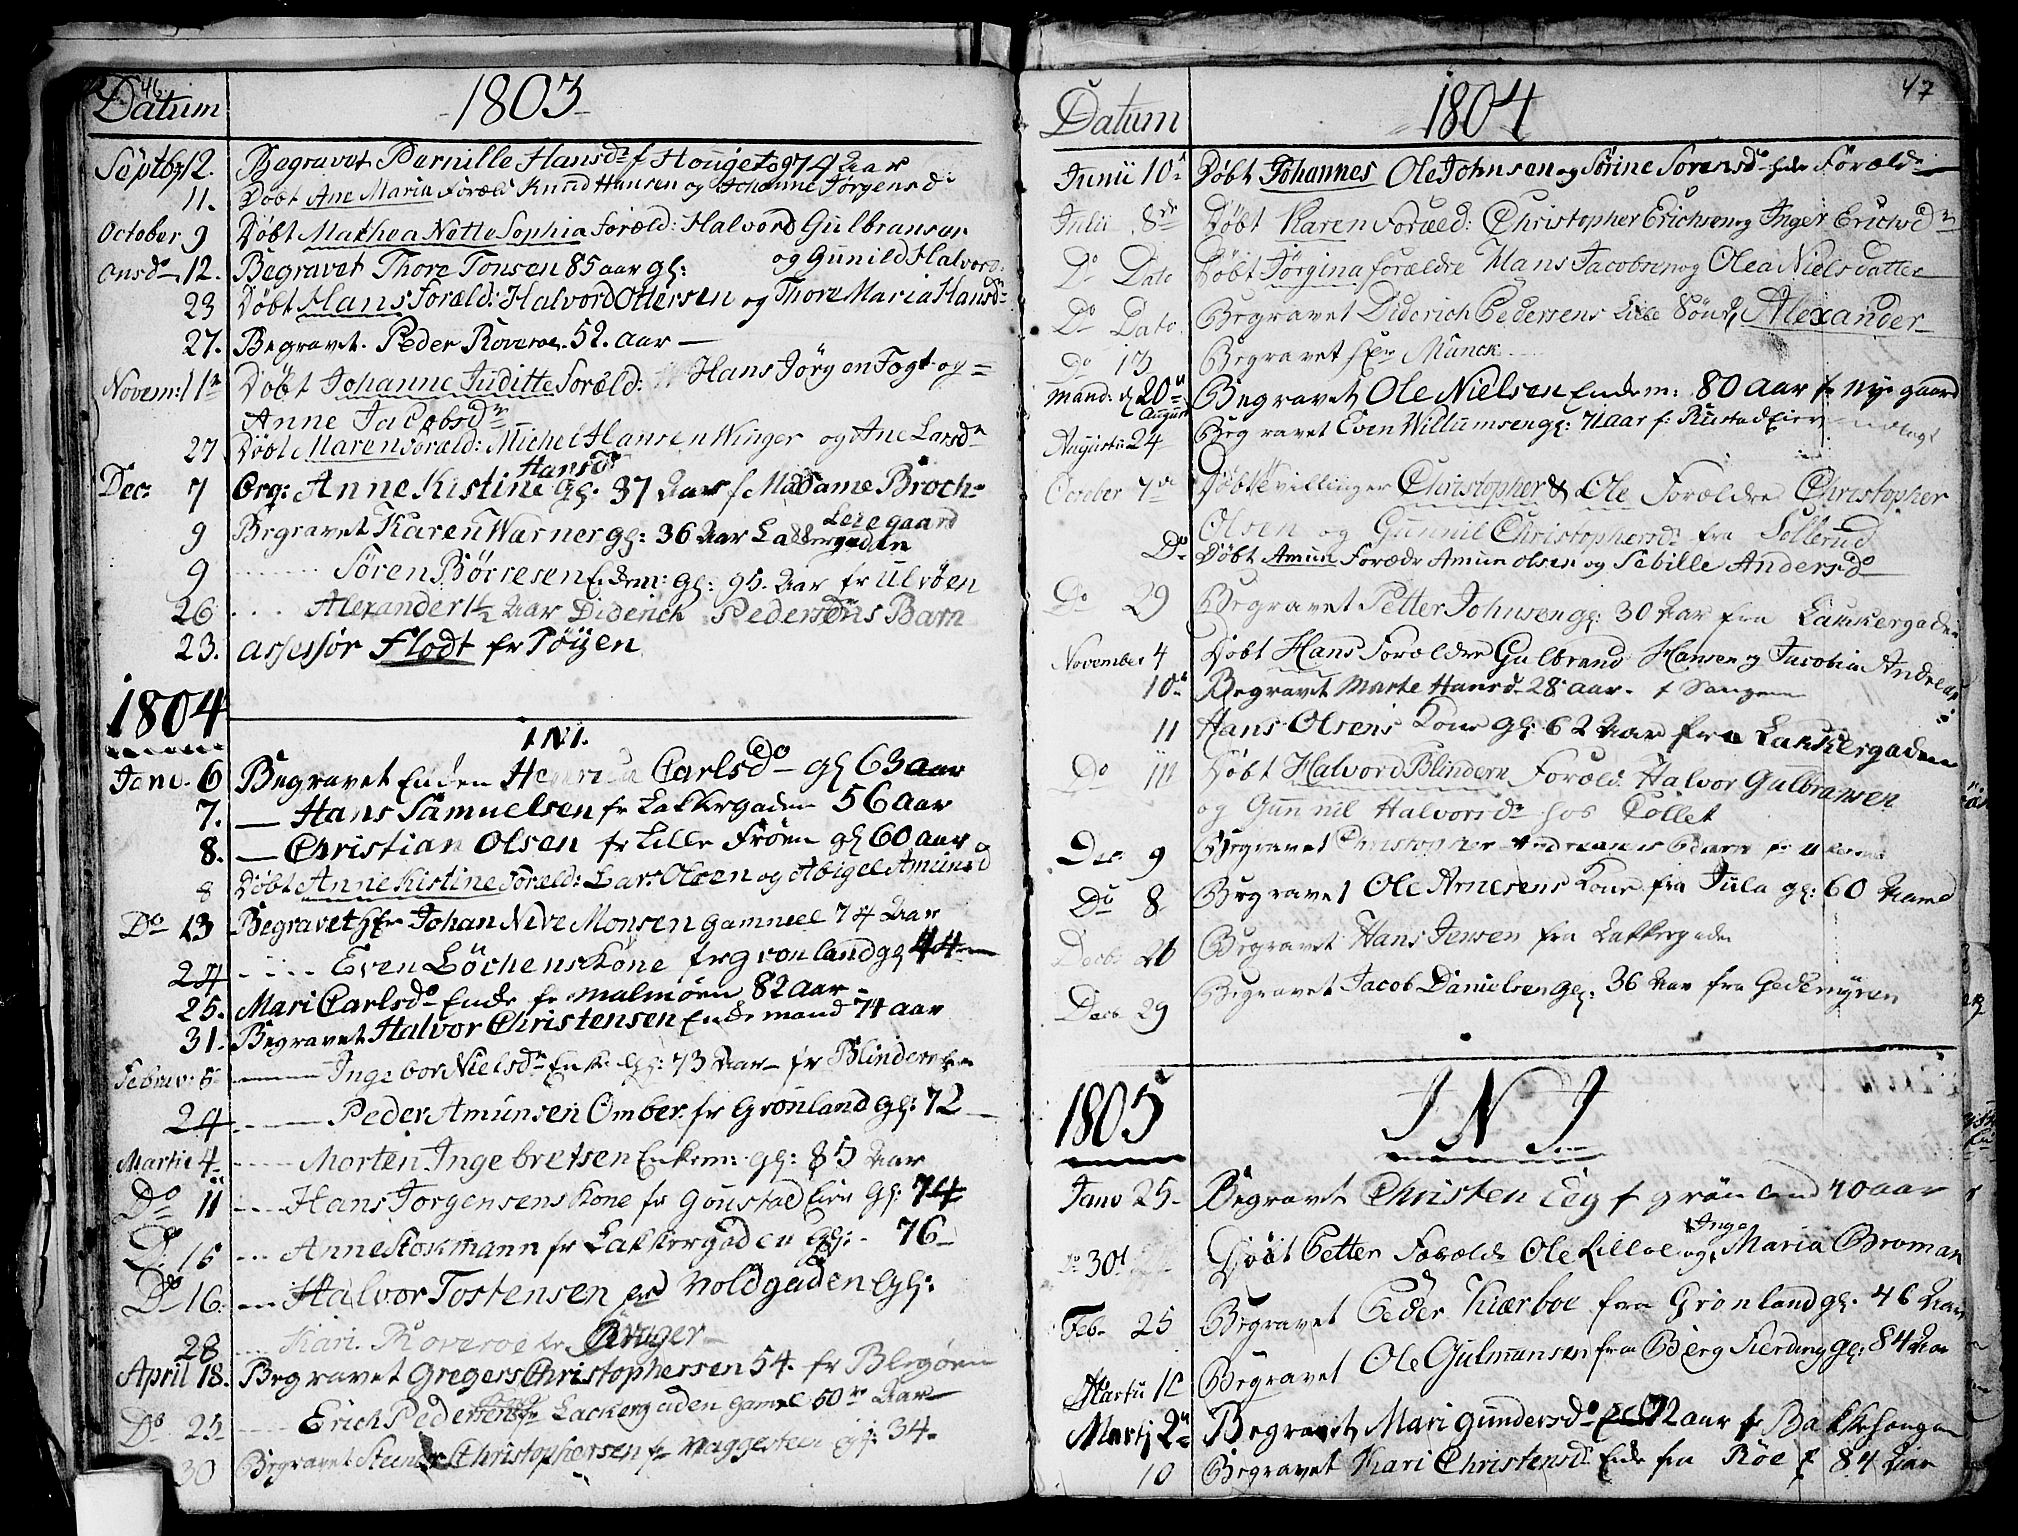 46
Datum
1803
Septbr 12. Begravet Pernille Hansdr f Houget og 74 Aar
11. Döbt Ane Maria Foræld Knud Hansen og Johanne Jörgensd
October 9 Döbt Mathea Nette Sophia Foræld: Halvord Gulbransen
og Gunild Halvord:
Onsd 12. Begravet Thore Tonsen 85 aar gl:
23 Döbt Hans Foræld: Halvord Ottersen og Thore Maria Hansdr
27. Begravet. Peder Roveroe. 52. aar
Novem: 1 Döbt Johanne Juditte Foræld: Hans Jörgen Fogt og
Anne Jacobsdr
27 Döbt Maren Foræld: Michel Hansen Winger og Ane Larsdr
Hansdr
Dec: 7 Begr: Anne Kistine gl: 37 Aar f Madame Broch
Leiegaard
9 Begravet Karen Warner gl: 36 Aar Lakkergaden
9 Sören Börresen Enkem: gl: 95. Aar fr Ulvöen
26 Alexander 1½ Aar Diderich Pedersens Barn
23. Assessor Flodt fr Töÿen
1804
INI.
Janv. 6 Begravet Enken Carlsdr gl 63 aar
7. Hans Samuelsen fr Lakkergaden 56 Aar
8. Christian Olsen fr Lille Fröen gl 60 aar
8 Döbt Anne Kistine Foræld: Lars Olsen og Abigel Amunsd
Do 13 Begravet Hr Johan Neve Monsen gammel 74 Aar
24 Even Löchens Kone fr Grönland gl 44
25. Mari Carlsdr Enke fr Malmöen 82 Aar
31. Begravet Halvor Christensen Enkemand 74 aar
Februar: 5 Ingebor Nielsdr Enke gl: 73 Aar fr Blinderen
24 Peder Amunsen Omber fr Grönland gl: 72
Martii 4 Morten Ingebretsen Enkem: gl: 85 Aar
Do 11 Hans Jorgensens Kone fr Goustad Eier gl: 74
D. 15 Anne Stokmann fr Lakkergaden gl: 76
Do 16. Halvor Tostensen fr Voldgaden gl:
28 Kari Roveroe fr
April 18. Begravet Gregers Christophersen 54. fr Blegöen
Do 25 Erich Pedersen fr Lackergaden gamel 60 Aar
30 Begravet Christophersen fr Vaggesteen gl: 34.
47
Datum
1804
Junii 10 Döbt Johannes Ole Johnsen og Sörine Sorensd Foræld
Julii 8 Döbt Karen Foræld: Christopher Erichsen og Inger Erichsd
Do Dato Döbt Jörgina Forældre Hans Jacobsen og Olea Nielsdatter
Do Dato Begravet Diderich Pedersens Lille Sön Alexander
Do 13 Begravet Hr Munck
Mand: d 20 August Begravet Ole Nielsen Enkem: 80 aar fr Nye gaard
Augusti 24 Begravet Even Willumsen gl: 71 aar f: Rustad Eier
October 7 Döbt tvillinger Christopher & Ole Forældre Christopher
Olsen og Gunnil Christophersd fra Sollerud
Do Döbt Amun Foræld Amun Olsen og Sebille Andersd
Do 29 Begravet Petter Johnsen gl: 30 Aar fra Lakkergaden
November 4 Döbt Hans Forældre Gulbrand Hansen og Jacobin Andreas
10 Begravet Marte Hansd 28 aar. f Sangen
11 Hans Olsens Kone gl: 62 Aar fra Lakkergaden
Do 11 Döbt Halvord Blindern Foræld. Halvor Gulbransen
og Gunnil Halvorsdr hos Collet
Dec. 9 Begravet Christopher
Do 8 Begravet Ole Arnesens Kone fra Jula gl: 60 Aar
Decbr 26 Begravet Hans Jensen fra Lakkergaden
Decb 29 Begravet Jacob Danielsen gl: 36 Aar fra Gedemÿren
1805
INJ
Janv 25 Begravet Christen Eeg f grönland 40 aar
Inge
30 Döbt Petter Foræld: Ole Lilloe og Maria Broman
Feb. 25 Begravet Peder Kierboe fra Grönland gl. 46 Aar
Martii Begravet Ole Gulmunsen fra Bierg Fierding gl: 84 Aar
Martij 2 Begravet Mari Gundersdr 72 aar fr Bakkehougen
10 Begravet Kari Christensd Enke fra Röe f 84 Aar